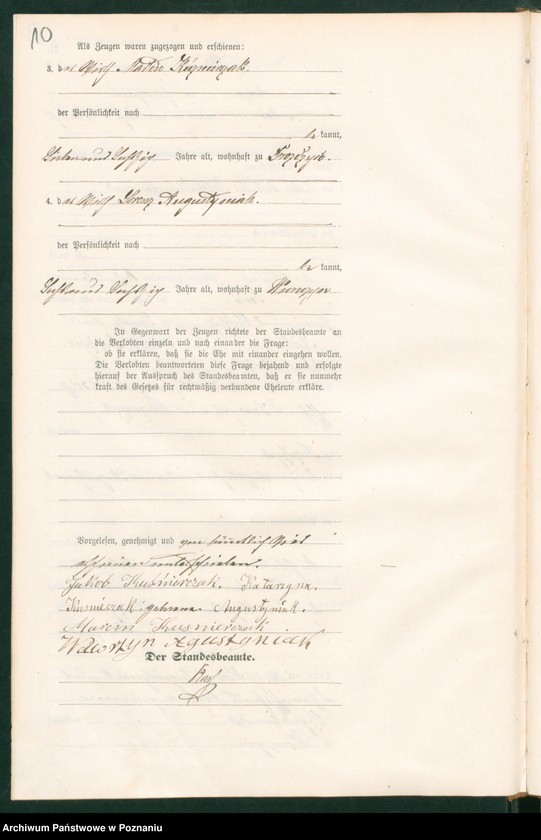 10
Als Zeugen waren zugezogen und erschienen:
3. der
der Persönlichkeit nach
be kannt,
Sieben und Sechzig Jahre alt, wohnhaft zu
4. der Lorenz Augustyniak.
der Persönlichkeit nach
be kannt,
Sechzig Jahre alt, wohnhaft zu
In Gegenwart der Zeugen richtete der Standesbeamte an
die Verlobten einzeln und nach einander die Frage:
ob sie erklären, daß sie die Ehe mit einander eingehen wollen.
Die Verlobten beantworteten diese Frage bejahend und erfolgte
hierauf der Ausspruch des Standesbeamten, daß er sie nunmehr
kraft des Gesetzes für rechtmäßig verbundene Eheleute erkläre.
Vorgelesen, genehmigt und
unterschrieben.
Jakob Kuśnierczak. Katarzyna
Kuśnierczak geborene Augustyniak.
Marcin Kusnierczak
Wawrzyn Agustyniak
Der Standesbeamte.
Archiwum Państwowe w Poznaniu